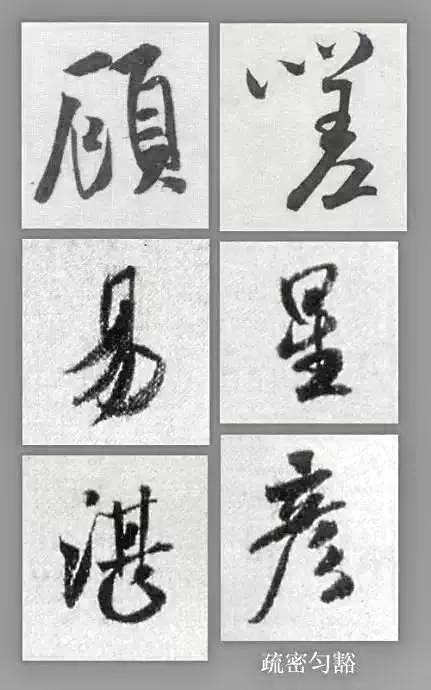 顧 嗟
易 星
湛 彦
疏密匀豁